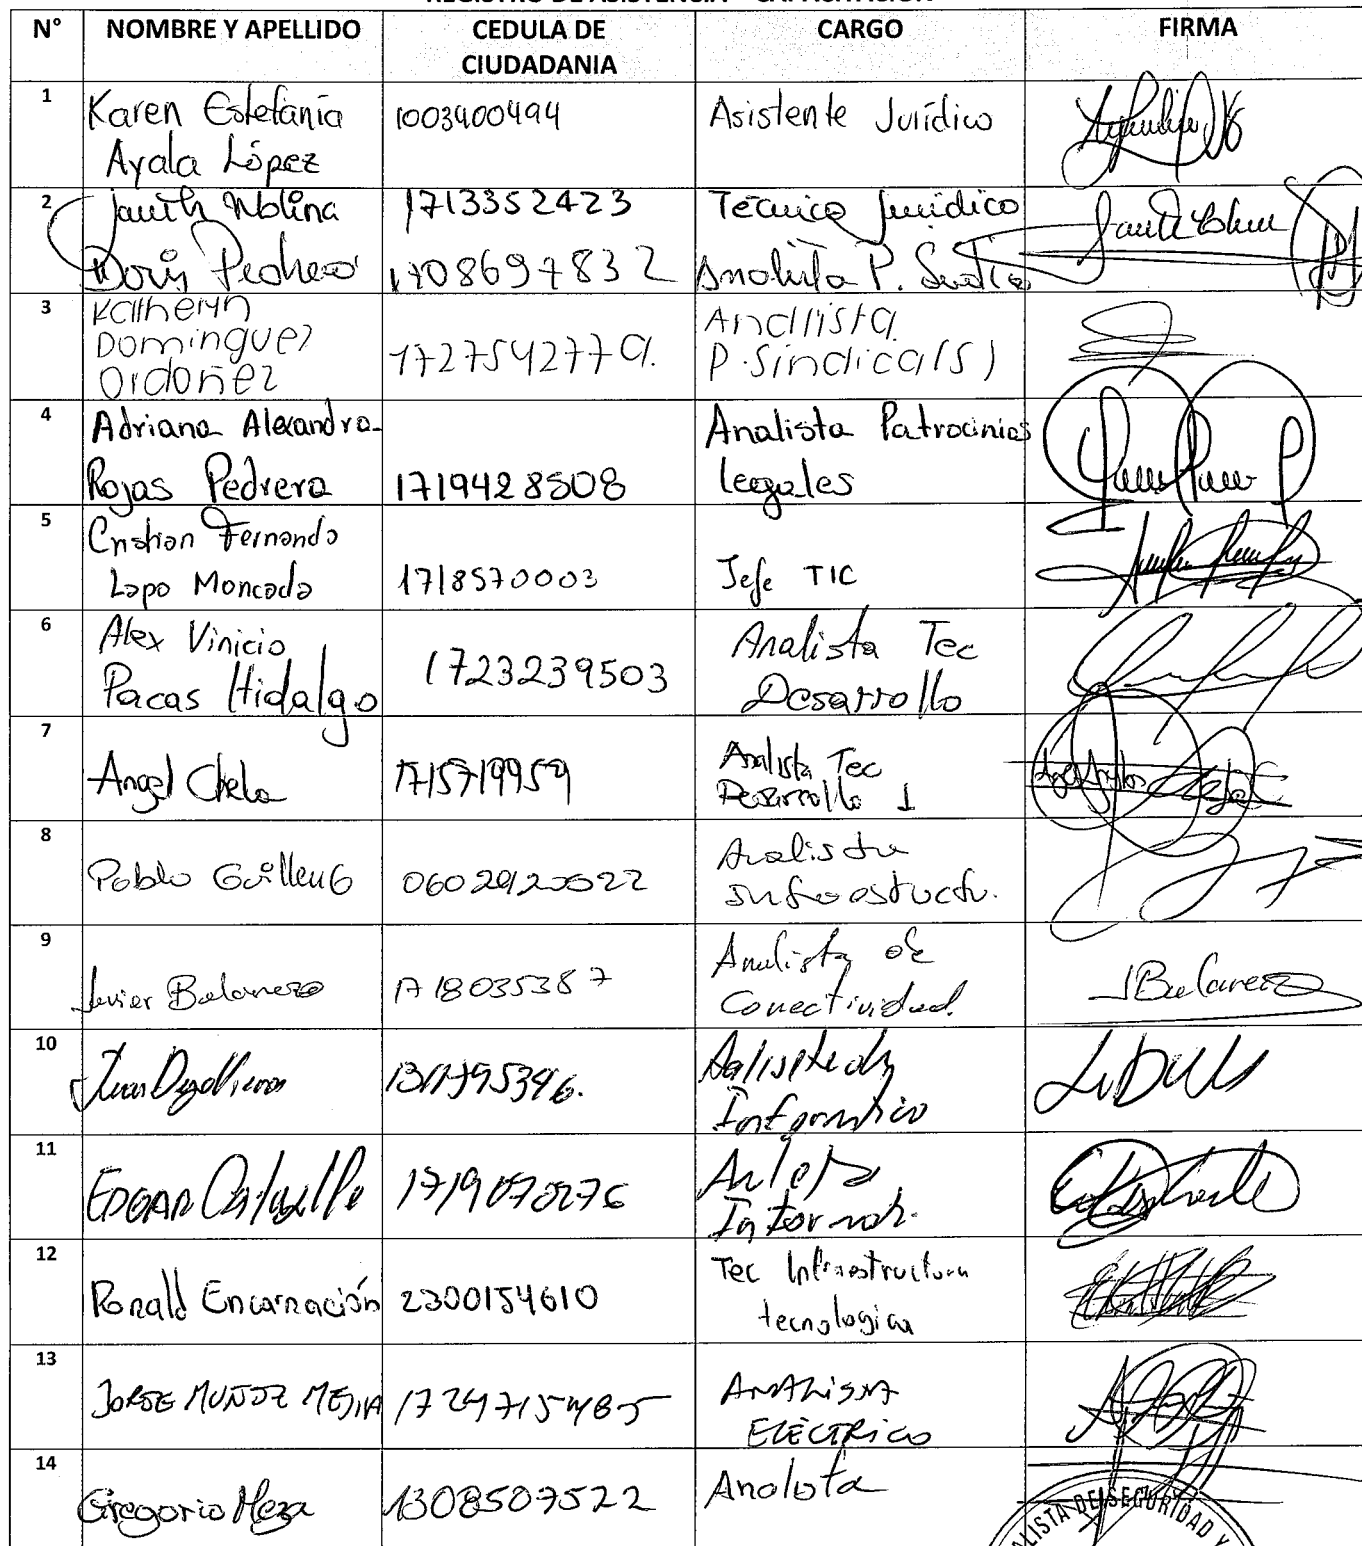 REGISTRO DE ASISTENCIA - CAPACITACION
N° NOMBRE Y APELLIDO CEDULA DE CIUDADANIA CARGO FIRMA
1 Karen Estefanía Ayala López 1003400494 Asistente Jurídico
2 Janeth Molina 1713352423 Técnico Jurídico
Doris Pedrero 1708697832 Analista P.
3 Katheryn Dominguez Ordoñez 1727542779. Analista P. Sindica(s)
4 Adriana Alexandra Rojas Pedrera 1719428508 Analista Patrocinios legales
5 Cristian Fernando Lapo Moncada 1718570003 Jefe TIC
6 Alex Vinicio Pacas Hidalgo 1723239503 Analista Tec Desarrollo
7 Angel Chela 1715719959 Analista Tec Desarrollo 1
8 Pablo Guillen G Analista
9 Javier Balarezo 1718035387 Analista de Conectividad. JBalarezo
10 Juan 1311795396. Informático
11 EDGAR 1719070276
12 Ronald Encarnación 2300154610 Tec Infraestructura tecnologica
13 JORGE MUÑOZ MEJIA 1724715485 ANALISTA ELÉCTRICO
14 Gregorio Meza 1308507522 Analista
DE SEGURIDAD Y